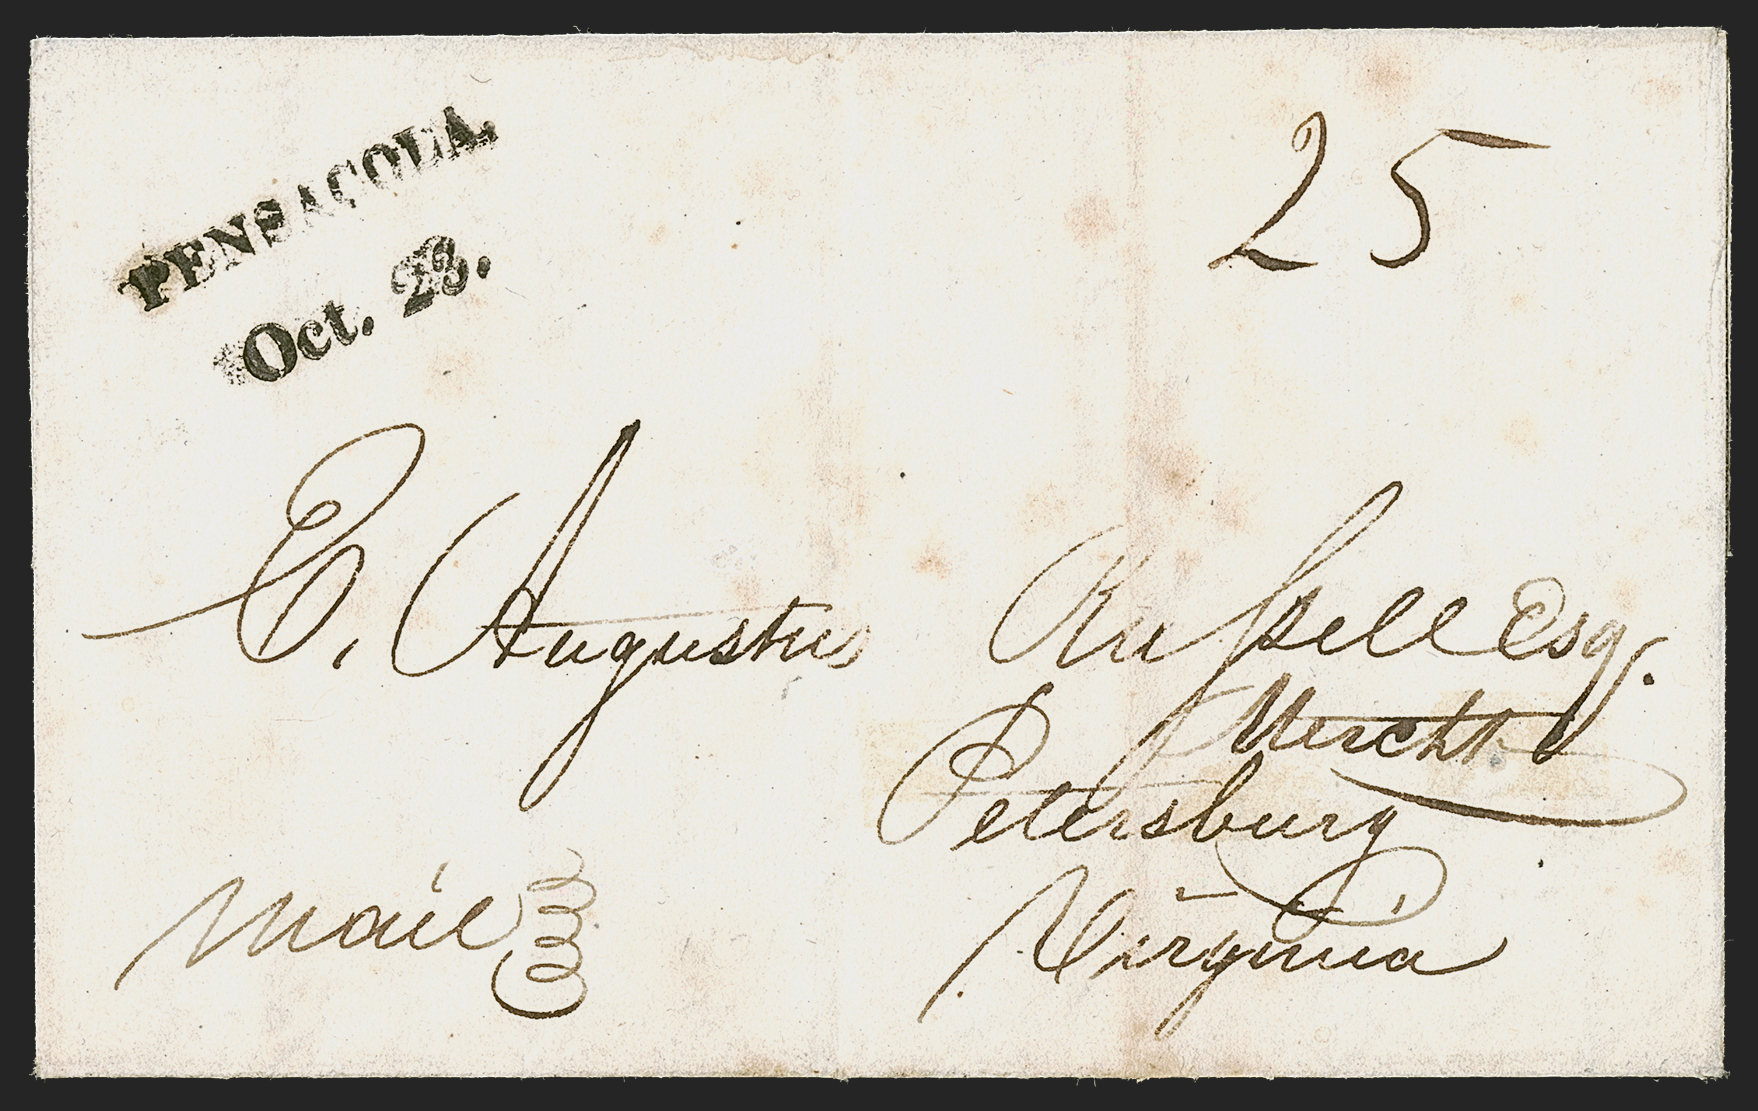 PENSACOLA.
Oct. 23.
25
C. Augustus Russell Esq.
Mercht.
Petersburg
Virginia
Mail